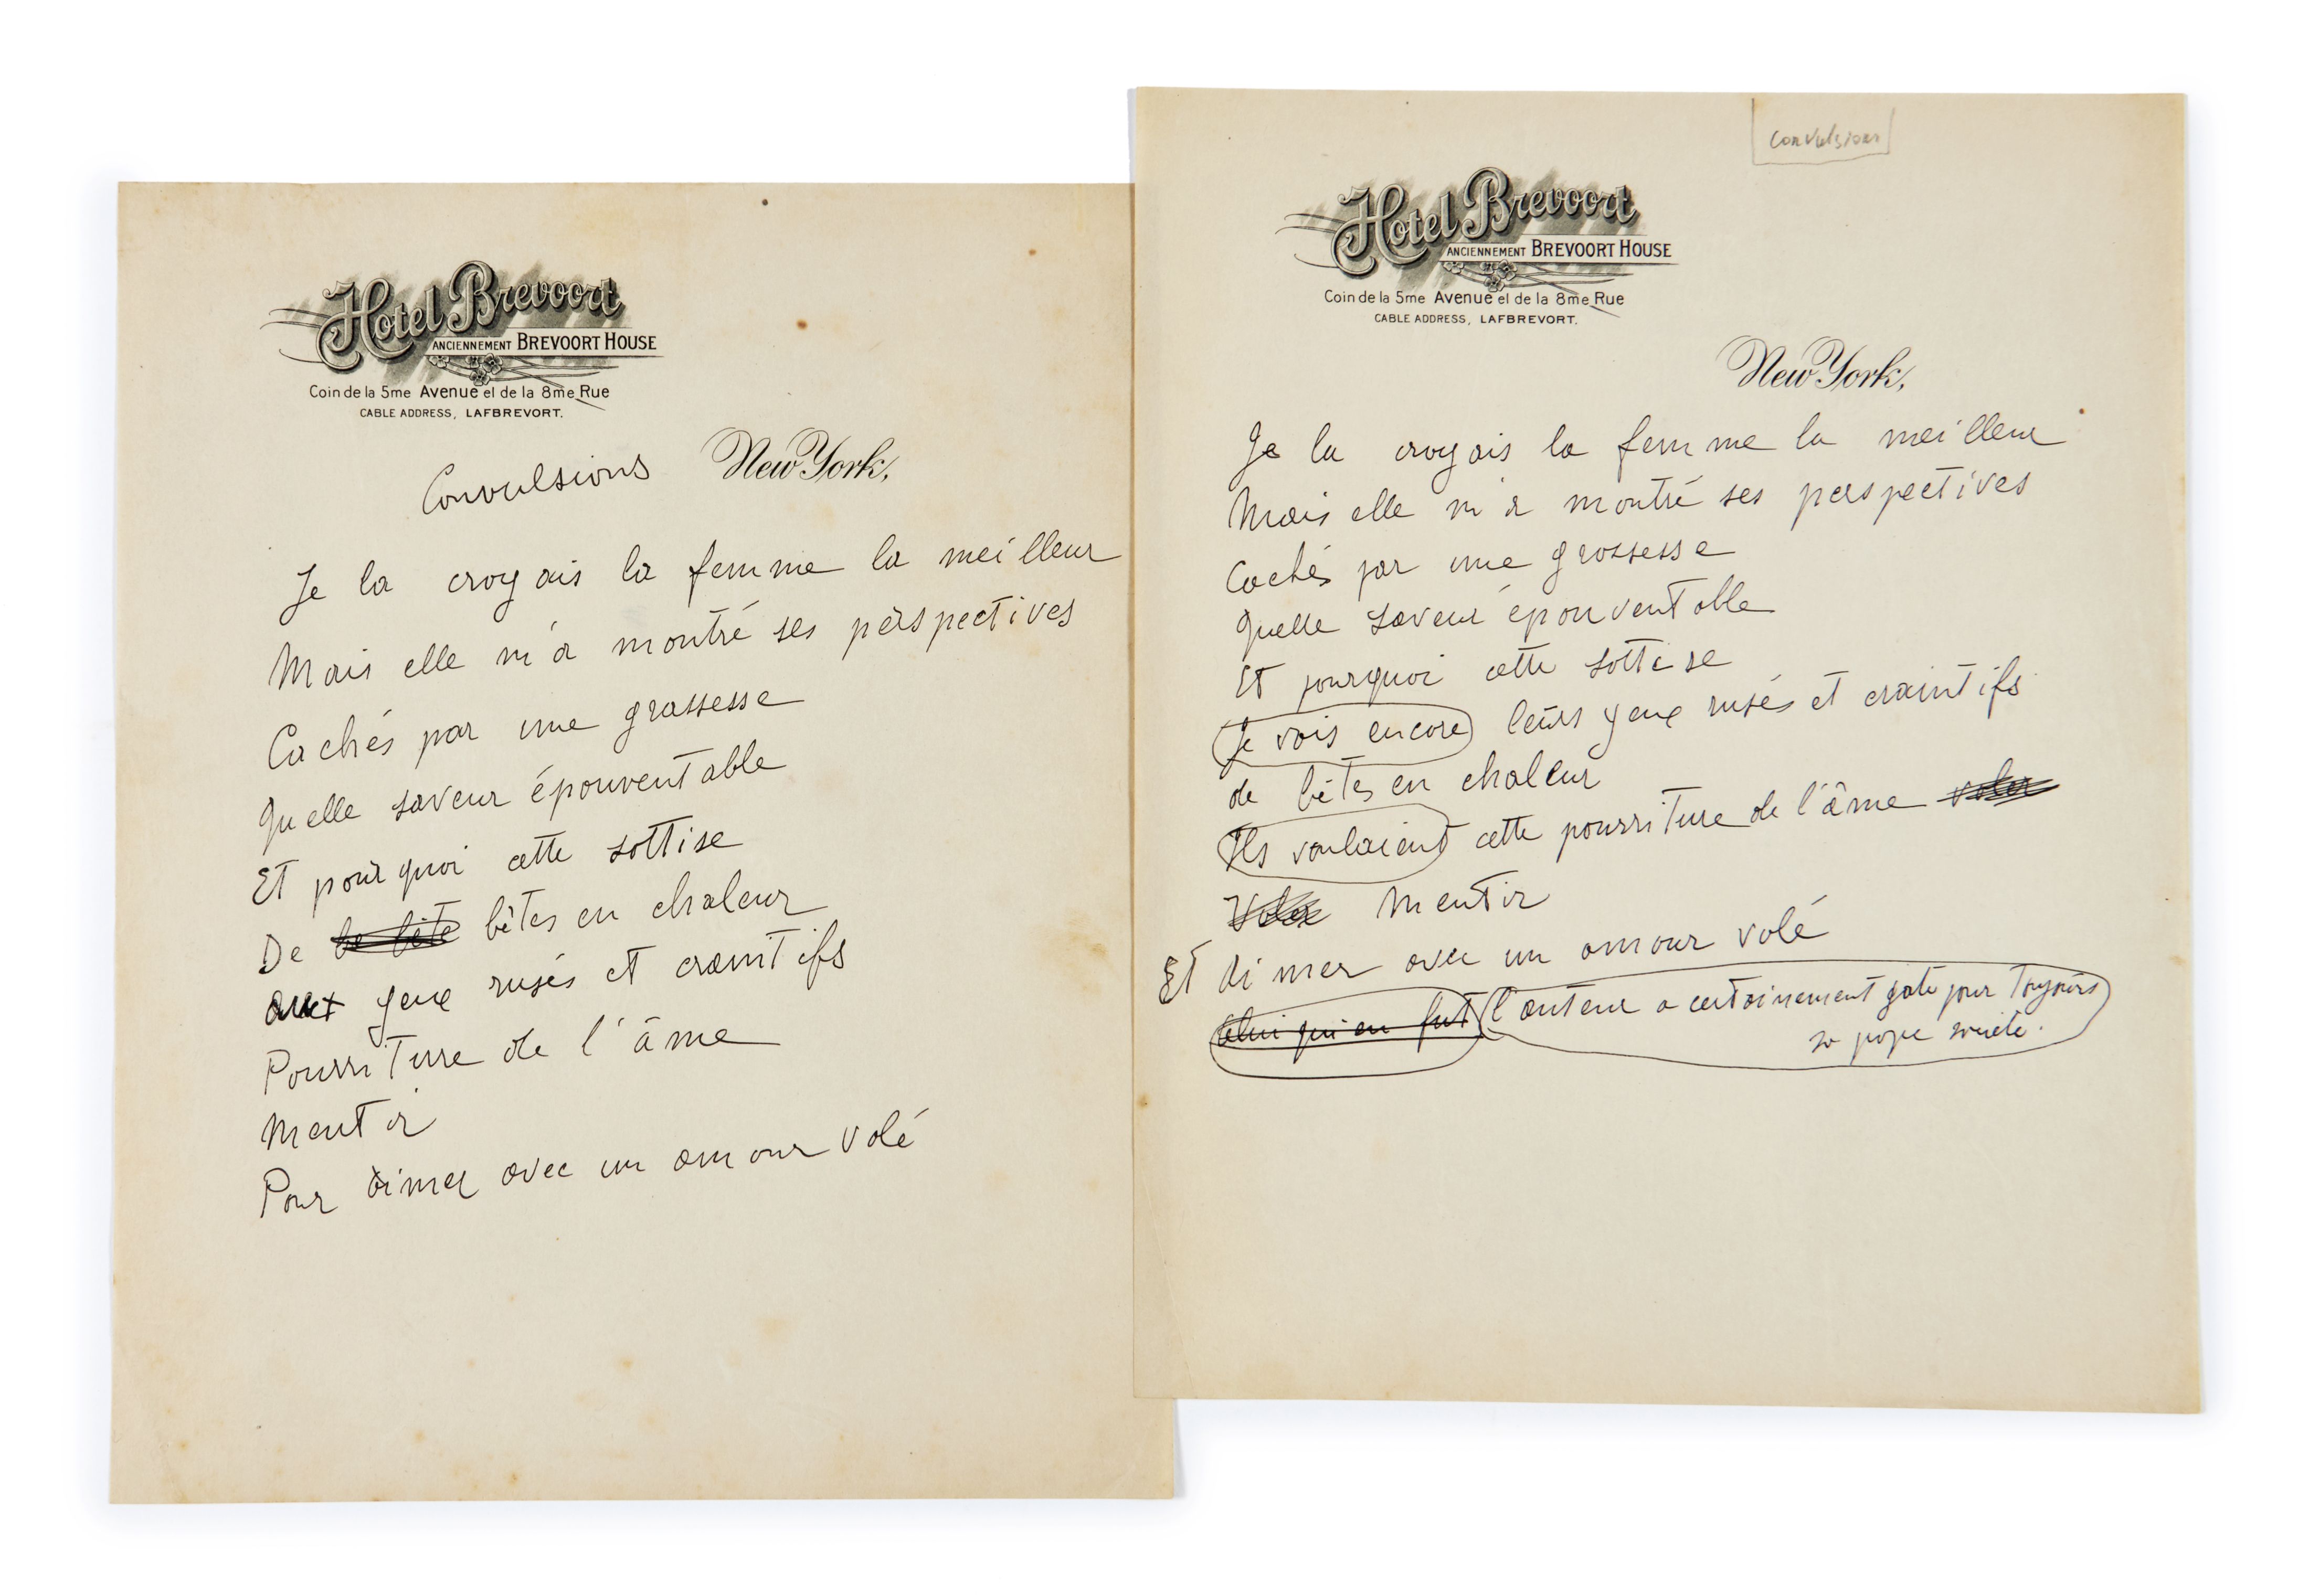 Hotel Brevoort
ANCIENNEMENT BREVOORT HOUSE
Coin de la 5me Avenue et de la 8me Rue
CABLE ADDRESS, LAFBREVORT.
New York,
Convulsions
Je la croyais la femme la meilleur
Mais elle m'a montré ses perspectives
Cachés par une grossesse
Quelle saveur épouventable
Et pourquoi cette sottise
De la bête bêtes en chaleur
aux yeux rusés et craintifs
Pourriture de l'âme
Mentir
Pour aimer avec un amour volé
convulsions
Hotel Brevoort
ANCIENNEMENT BREVOORT HOUSE
Coin de la 5me Avenue et de la 8me Rue
CABLE ADDRESS, LAFBREVORT.
New York,
Je la croyais la femme la meilleur
Mais elle m'a montré ses perspectives
Cachés par une grossesse
Quelle saveur épouventable
Et pourquoi cette sottise
Je vois encore leurs yeux rusés et craintifs
de bêtes en chaleur
Ils voulaient cette pourriture de l'âme voler
Voler Mentir
Et aimer avec un amour volé
Celui qui en fut l'auteur a certainement gaté pour toujours
sa pope